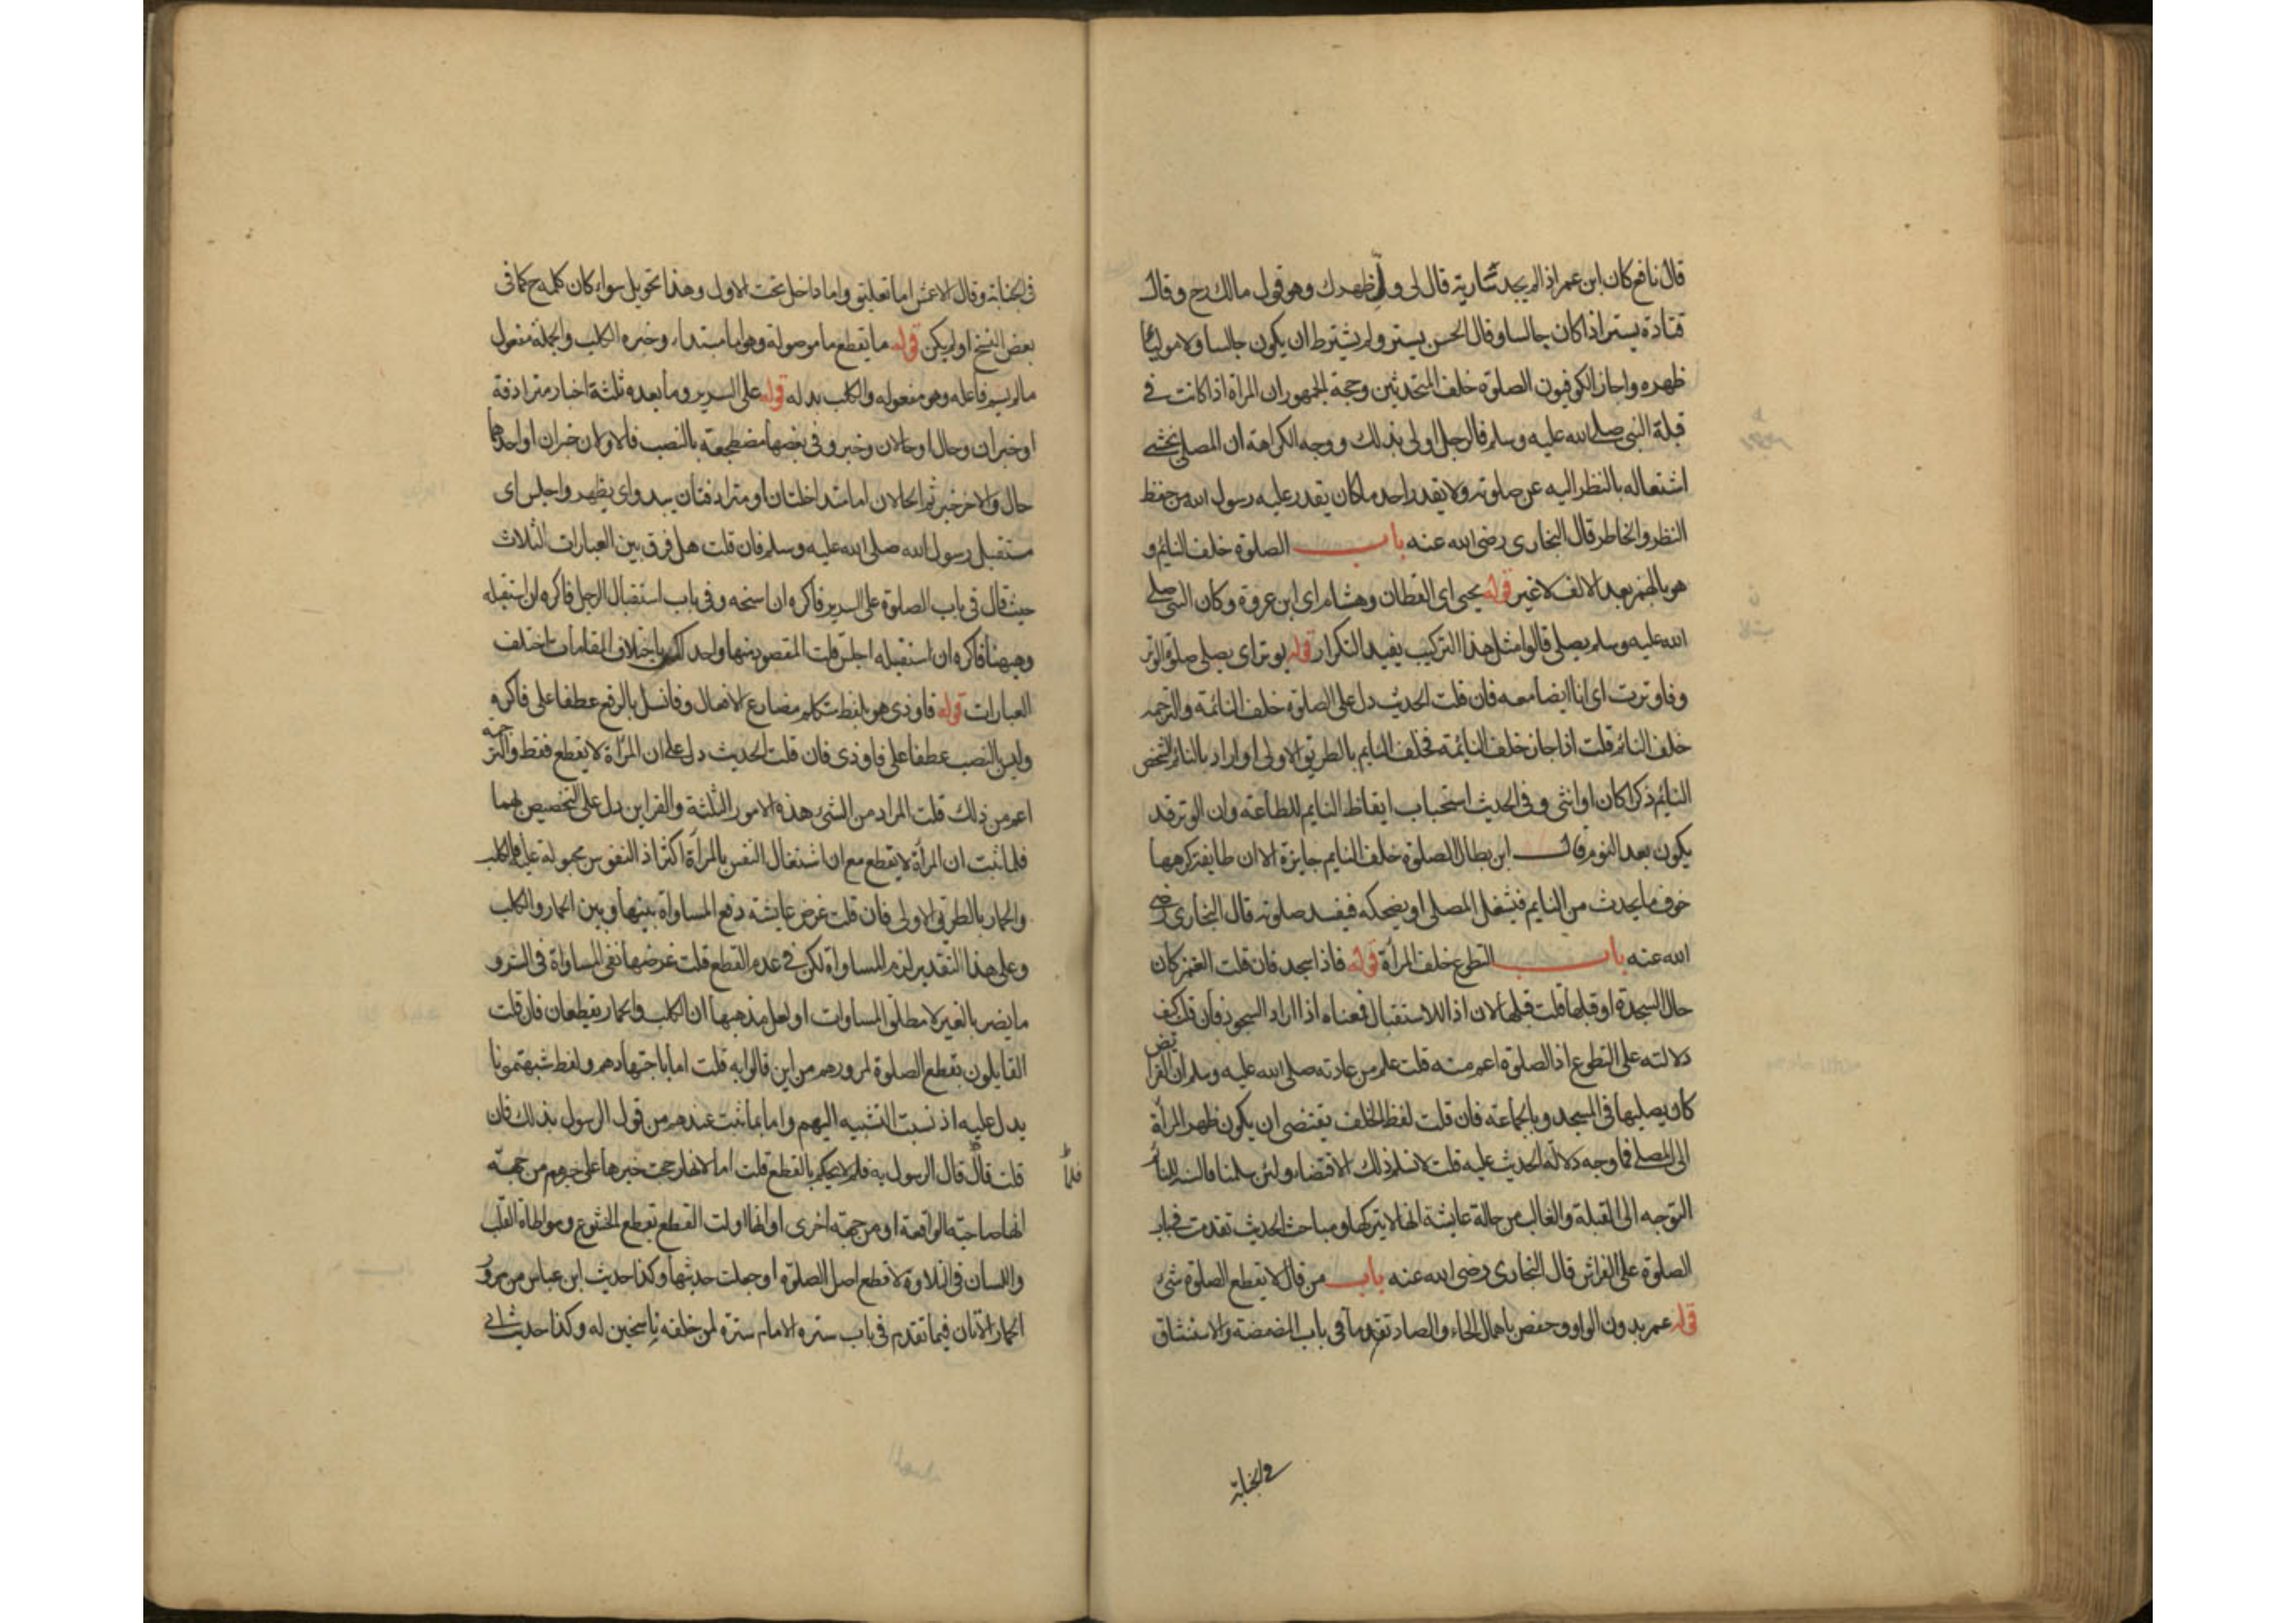 قال نافع كان ابن عمر اذا لم يجد سارية قال لى ول ظهرك وهو قول مالك رح وقال
قتادة يستر اذا كان جالسا وقال الحسن يستر ولم يشترط ان يكون جالسا ولا موليا
ظهره واجاز الكوفيون الصلوة خلف المتحدثين وحجة الجمهور ان المرأة اذا كانت فى
قبلة النبى صلى الله عليه وسلم فالرجل اولى بذلك ووجه الكراهة ان المصلى يخشى
اشتغاله بالنظر اليه عن صلوته ولا يقدر احد ما كان يقدر عليه رسول الله من حفظ
النظر والخاطر قال البخارى رضى الله عنه باب الصلوة خلف النائم و
هو بالهمز بعد الالف لا غير قوله يحيى اى القطان وهشام اى ابن عروة وكان النبى صلى
الله عليه وسلم يصلى قالوا مثل هذا التركيب يفيد التكرار قوله يوتر اى يصلى صلوة الوتر
وفاوترت اى انا ايضا معه فان قلت الحديث دل على الصلوة خلف النائمة والترجمه
خلف النائم قلت اذا جاز خلف النايمة فخلف النايم بالطريق الاولى او اراد بالنائم الشخص
النايم ذكرا كان او انثى وفى الحديث استحباب ايقاظ النايم للطاعة وان الوتر قد
يكون بعد النوم قال ابن بطال الصلوة خلف النايم جايزة الا ان طايفة كرهها
خوف ما يحدث من النايم فيشغل المصلى او يضحكه فيفسد صلوته قال البخارى رضى
الله عنه باب التطوع خلف المرأة قوله فاذا سجد فان قلت الغمز كان
حال السجدة او قبلها قلت قبلها لان اذا للاستقبال فمعناه اذا اراد السجود فان قلت كيف
دلالته على التطوع اذ الصلوة اعم منه قلت علم من عادته صلى الله عليه وسلم ان الفرايض
كان يصليها فى المسجد وبالجماعة فان قلت لفظ الخلف يقتضى ان يكون ظهر المرأة
الى المصلى فما وجه دلالة الحديث عليه قلت لا نسلم ذلك الاقتضاء ولئن سلمنا فالسنة للنائم
التوجه الى القبلة والغالب من حالة عايشة انها لا يتركها ومباحث الحديث تقدمت فى باب
الصلوة على الفراش قال البخارى رضى الله عنه باب من قال لا يقطع الصلوة شئ
قوله عمر بدون الواو وحفص باهمال الحاء والصاد تقدما فى باب المضمضة والاستنشاق
فى الجنابة
فى الجنابة وقال الاعمش اما تعليق واما داخل تحت الاول وهذا تحويل سواء كان كلمة ح كما فى
بعض النسخ او لم يكن قوله ما يقطع ما موصولة وهو اما مبتداء وخبره الكلب والجملة مفعول
ما لم يسم فاعله وهو مفعوله والكلب بدله قوله على السرير وما بعده ثلثة اخبار مترادفة
او خبران وحال او حالان وخبر وفى بعضها مضطجعة بالنصب فالاولان خبران او احدهما
حال والاخر خبر ثم الحالان اما متداخلتان او مترادفتان يبدو اى يظهر واجلس اى
مستقبل رسول الله صلى الله عليه وسلم فان قلت هل فرق بين العبارات الثلاث
حيث قال فى باب الصلوة على السرير فاكره ان اسنحه وفى باب استقبال الرجل فاكره ان استقبله
وههنا فاكره ان استقبله اجلس قلت المقصود منها واحد لكن باختلاف المقامات اختلف
العبارات قوله فاوذى هو بلفظ متكلم مضارع الافعال وفانسل بالرفع عطفا على فاكره
وليس النصب عطفا على فاوذى فان قلت الحديث دل على ان المرأة لا يقطع فقط والترجمة
اعم من ذلك قلت المراد من الشئ هذه الامور الثلثة والقراين دل على التخصيص بهما
فلما ثبت ان المرأة لا يقطع مع ان اشتغال النفس بالمرأة اكثر اذ النفوس مجبولة عليه فالكلب
والحمار بالطريق الاولى فان قلت غرض عايشة دفع المساواة بينها وبين الحمار والكلب
وعلى هذا التقدير لزم المساواة لكن فى عدم القطع قلت غرضها نفى المساواة فى الشر و
ما يضر بالغير لا مطلق المساوات او لعل مذهبها ان الكلب والحمار يقطعان فان قلت
القايلون بقطع الصلوة لمرورهم من اين قالوا به قلت اما باجتهادهم ولفظ شبهتمونا
يدل عليه اذ نسبت التشبيه اليهم واما بما ثبت عندهم من قول الرسول بذلك فان
قلت قال قال الرسول به فلم لا يحكم بالقطع قلت اما لانها رجحت خبرها على خبرهم من جهة
فلما
انها صاحبة الواقعة او من جهة اخرى او لانها اولت القطع بقطع الخشوع ومواطاة القلب
واللسان فى التلاوة لا قطع اصل الصلوة او جعلت حديثها وكذا حديث ابن عباس من مرور
الحمار الاتان فيما تقدم فى باب سترة الامام سترة لمن خلفه ناسخين له وكذا حديث ابى